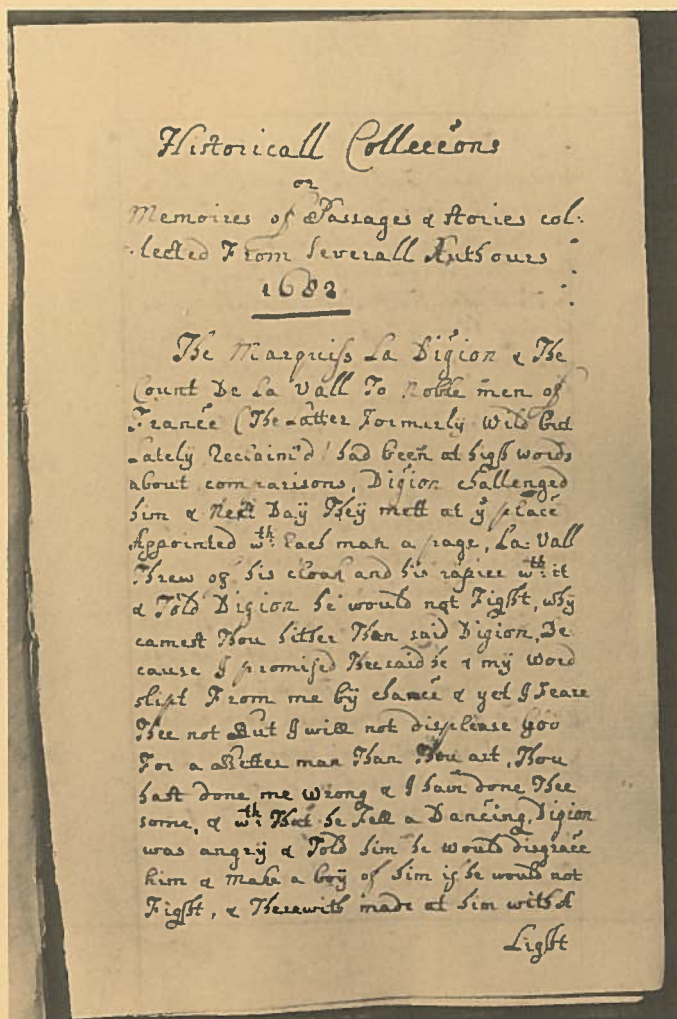 Historicall Collecc̄ons
or
Memoires of Passages & stories col:
:lected From Severall Authours
1682
The Marqueiss La Digion & The
Count De La Vall To Noble men of
France (The Latter Formerly Wild but
Lately Reclaim'd) had been at high words
about comparisons, Digion challenged
him & Next Day They mett at yͤ place
Appointed wᵗʰ: Each man a page, La: Vall
Threw of his cloak and his rapier wᵗʰ: it
& Told Digion he would not Fight, why
camest Thou hither Than said Digion, Be
cause I promised Thee said he & my word
slipt From me by chance & yet I Feare
Thee not But I will not displease God
For a Better man Than Thou art, Thou
hast done me wrong & I have done Thee
some, & wᵗʰ: That he Fell a Dancing, Digion
was angry & Told him he would disgrace
him & make a boy of him if he would not
Fight, & Therewith made at him with d
Light